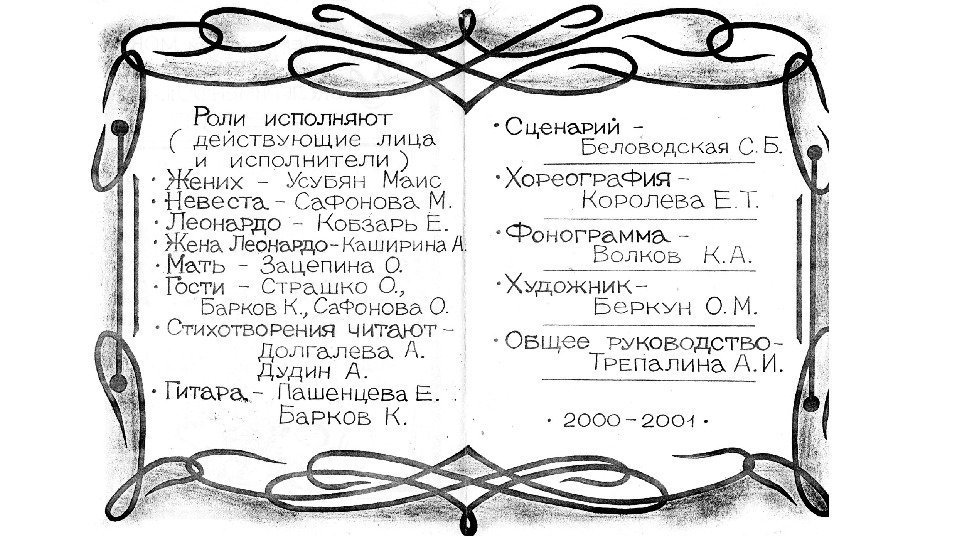 Роли исполняют
( действующие лица
и исполнители )
• Жених – Усубян Маис
• Невеста – Сафонова М.
• Леонардо – Кобзарь Е.
• Жена Леонардо – Каширина А.
• Мать – Зацепина О.
• Гости – Страшко О.,
Барков К., Сафонова О.
• Стихотворения читают –
Долгалева А.
Дудин А.
• Гитара – Пашенцева Е.
Барков К.
• Сценарий –
Беловодская С.Б.
• Хореография –
Королева Е.Т.
• Фонограмма –
Волков К.А.
• Художник –
Беркун О.М.
• Общее руководство –
Трепалина А.И.
• 2000–2001 •